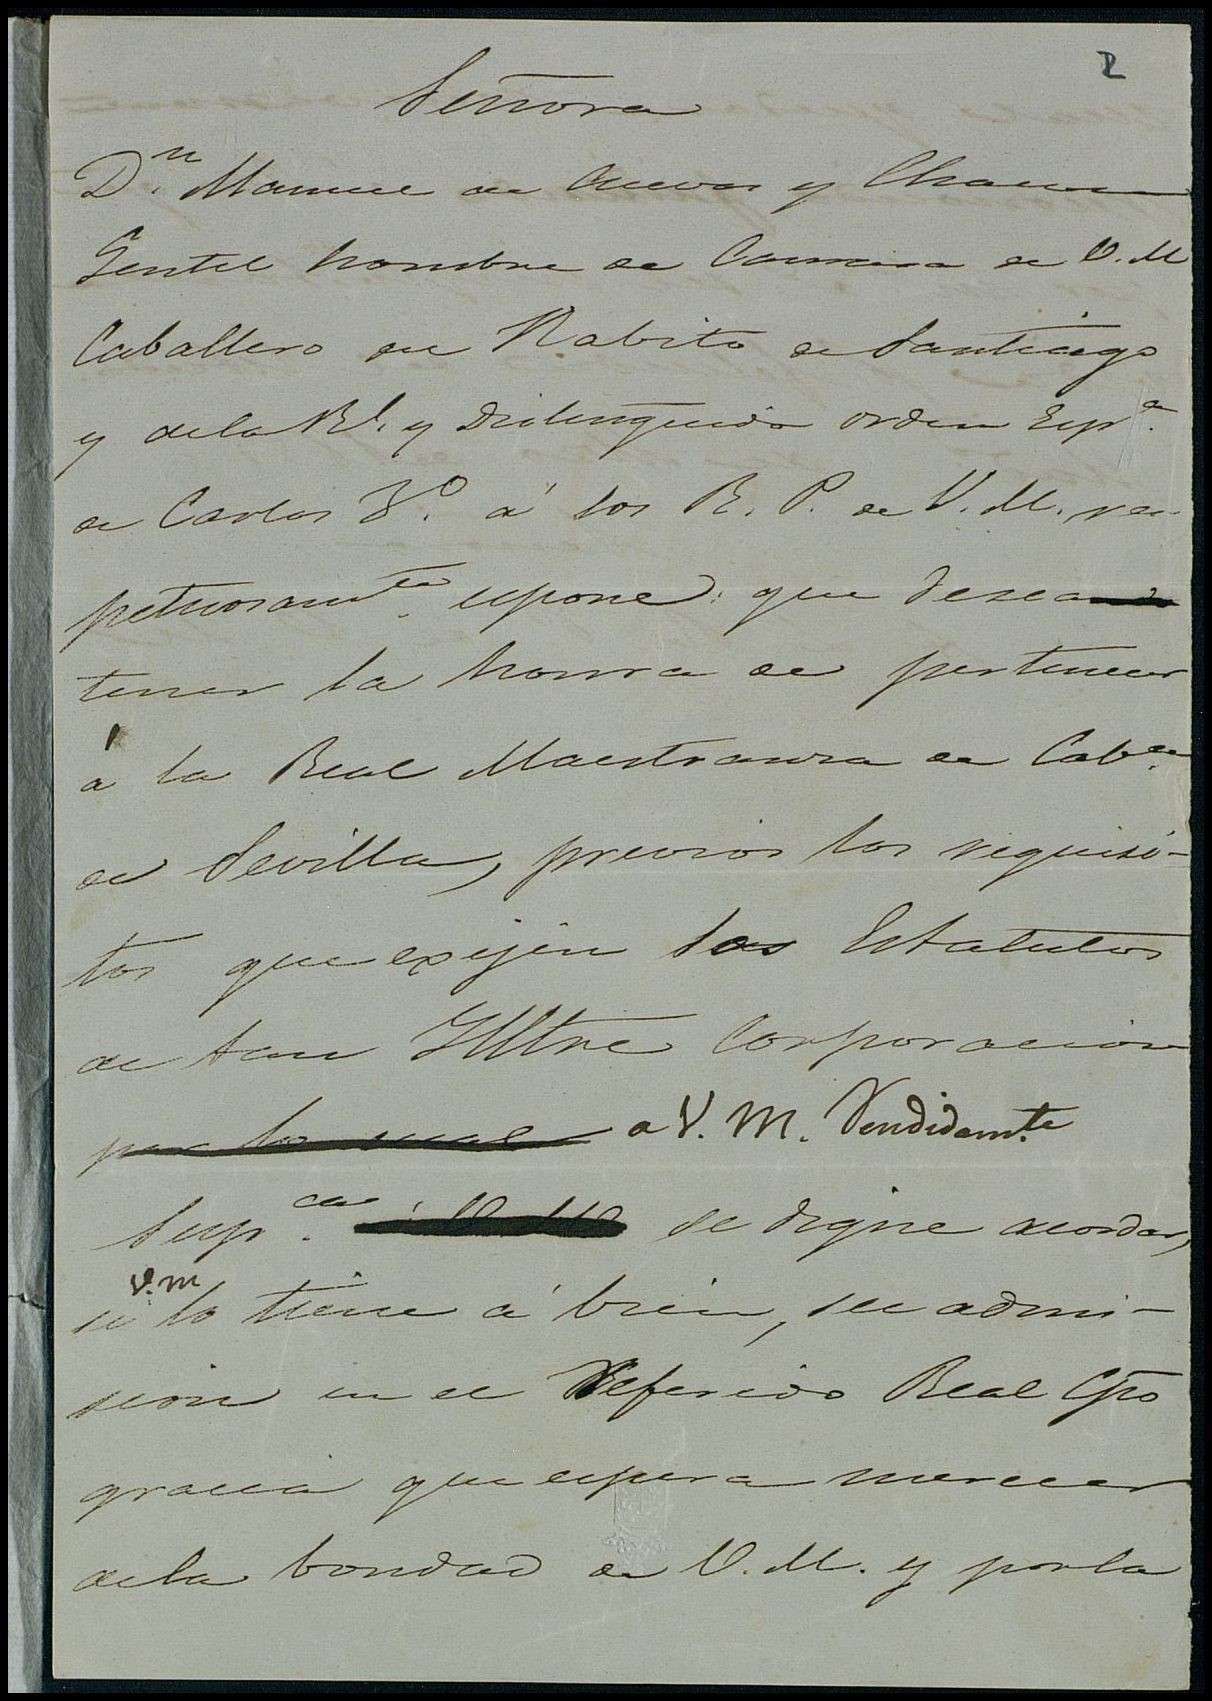 2
Señora
D.n Manuel de Cuevas y Chacon
Gentil hombre de Camara de V. M
Caballero del Habito de Santiago
y dela Rl. y Distinguida orden Esp.a
de Carlos 3.o á los R. P. de V. M. res-
petuosam.te espone: que desea
tener la honra de pertenecer
á la Real Maestranza de Cab.ia
de Sevilla, previos los requisi-
tos que exijen los Estatutos
de tan Illtre Corporacion
por lo cual a V. M. Rendidam.te
Sup.ca á V. M. se digne acordar,
V. M
si lo tiene á bien, su admi-
sion en el referido Real Cpo
gracia que espera merecer
dela bondad de V. M. y porla